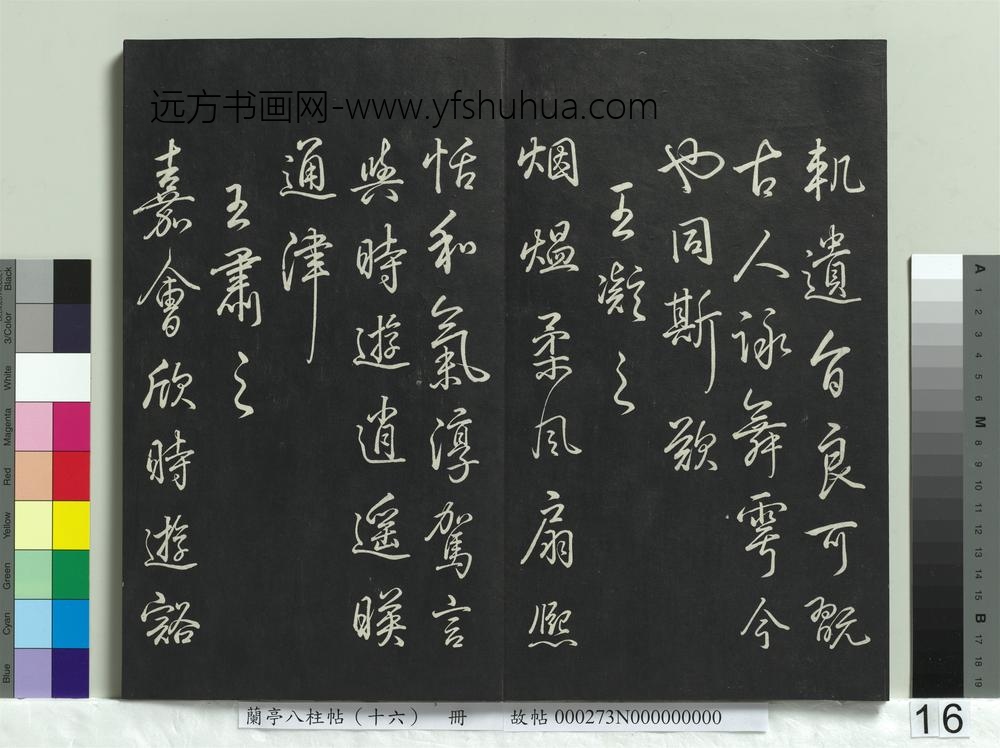 远方书画网-www.yfshuhua.com
軌遺音良可翫
古人詠舞雩今
也同斯歎
王凝之
烟熅柔風扇熈
恬和氣淳駕言
與時遊逍遙暎
通津
王肅之
嘉會欣時遊豁
蘭亭八柱帖(十六) 冊 故帖 000273N000000000
16
Black
3/Color
White
Magenta
Red
Yellow
Green
Cyan
Blue
A
1
2
3
4
5
6
M
8
9
10
11
12
13
14
15
B
17
18
19